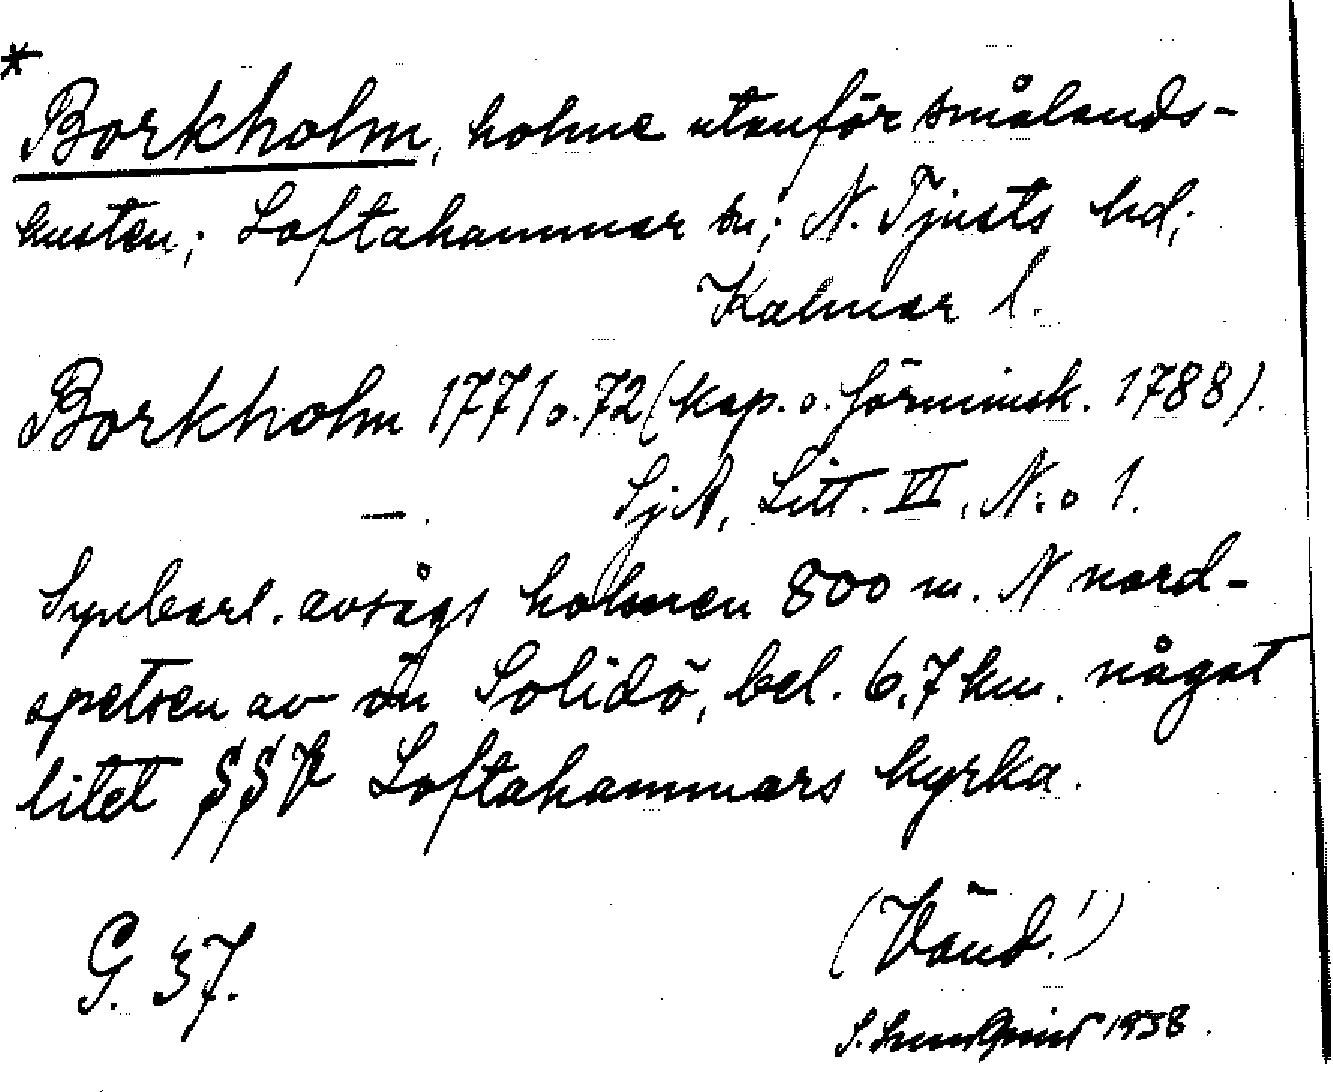 *
Borkholm, holme utanför smålands-
kusten; Loftahammar sn; N. Tjusts hd;
Kalmar l.
Borkholm 1771 o. 72 (kop. o. förminsk. 1788).
— SjA, Litt. VI, N:o 1.
Synbarl. avságs holmen 800 m. N nord-
spetsen av ön Solidö, bel. 6,7 km. något
litet SSV Loftahammars kyrka.
(Vänd!)
G. 37.
S. 1938.